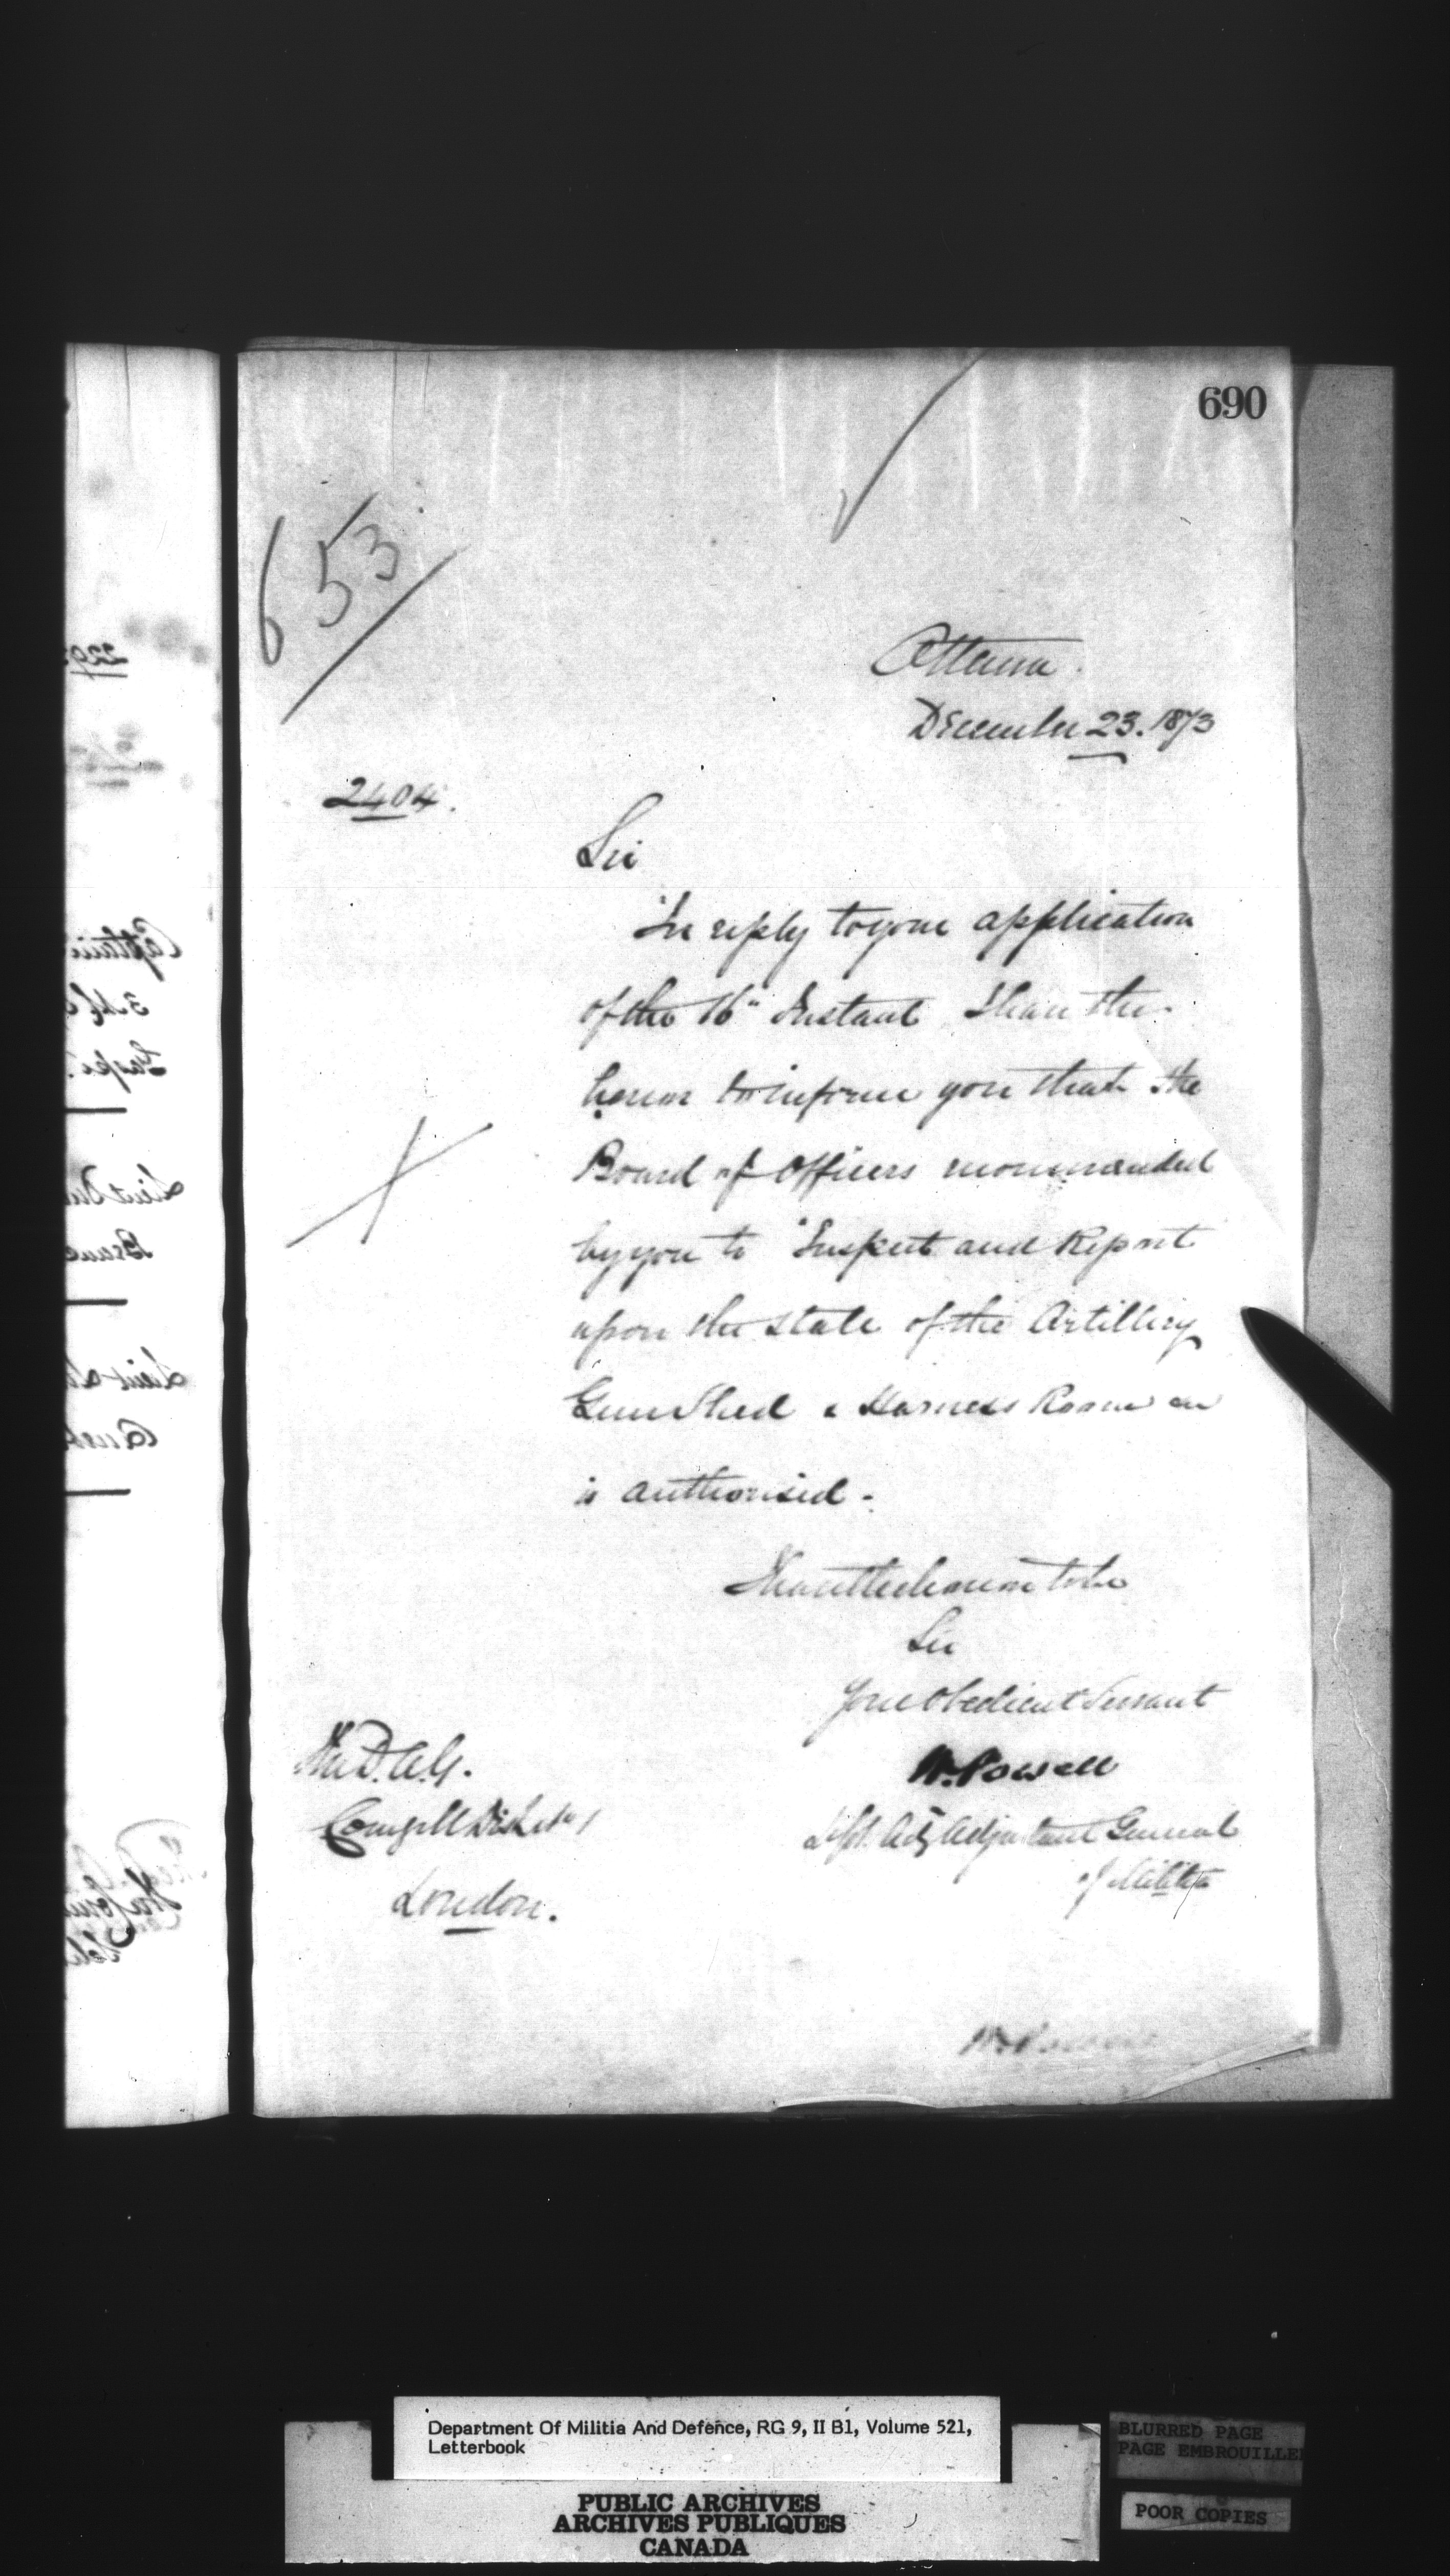 690
653
Ottawa.
December 23. 1873
2404.
Sir
In reply to your application
of the 16" Instant I have the
honor to inform you that the
Board of Officers recommended
by you to Inspect and Report
upon the state of the Artillery
Gun Shed & Harness Room
is authorised.
I have the honor to be
Sir
Your Obedient Servant
W. Powell
Adjutant General
of Militia
The D.A.G.
Comg Mil Dist No 1
London.
Department Of Militia And Defence, RG 9, II B1, Volume 521,
Letterbook
PUBLIC ARCHIVES
ARCHIVES PUBLIQUES
CANADA
BLURRED PAGE
PAGE EMBROUILLE
POOR COPIES